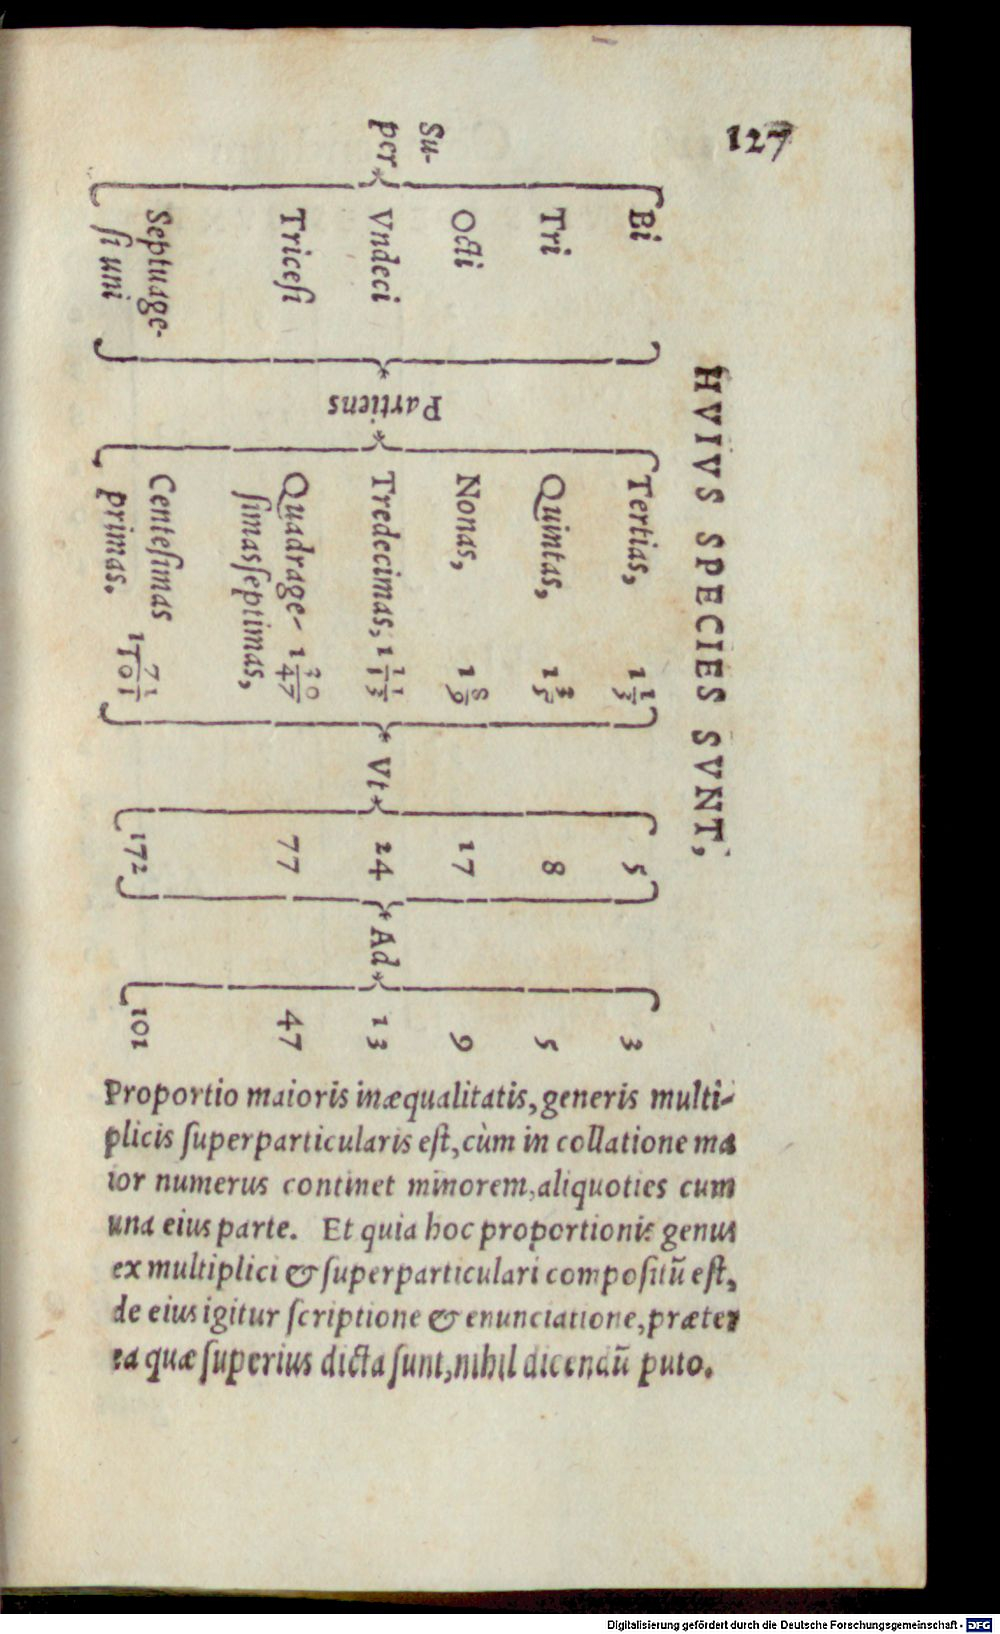 127
HVIVS SPECIES SVNT,
Su-
per
Bi
Tri
Octi
Vndeci
Tricesi
Septuage-
si uni
Partiens
Tertias, 1
Quintas, 1 3/5
Nonas, 1 8/9
Tredecimas, 1 11/13
Quadrage- 1 30/47
simasseptimas,
Centesimas
primas. 1 71/101
Vt
5
8
17
24
77
172
Ad
3
5
9
13
47
101
Proportio maioris inæqualitatis, generis multi-
plicis superparticularis est, cùm in collatione ma
ior numerus continet minorem, aliquoties cum
una eius parte. Et quia hoc proportionis genus
ex multiplici & superparticulari compositū est,
de eius igitur scriptione & enunciatione, præter
ea quæ superius dicta sunt, nihil dicendū puto.
Digitalisierung gefördert durch die Deutsche Forschungsgemeinschaft - DFG